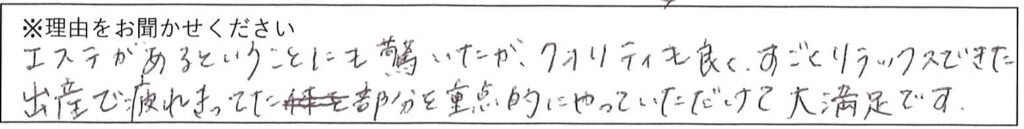 ※理由をお聞かせください
エステがあるということにも驚いたが、クオリティも良く、すごくリラックスできた
出産で疲れきってた部分を重点的にやっていただけて大満足です.